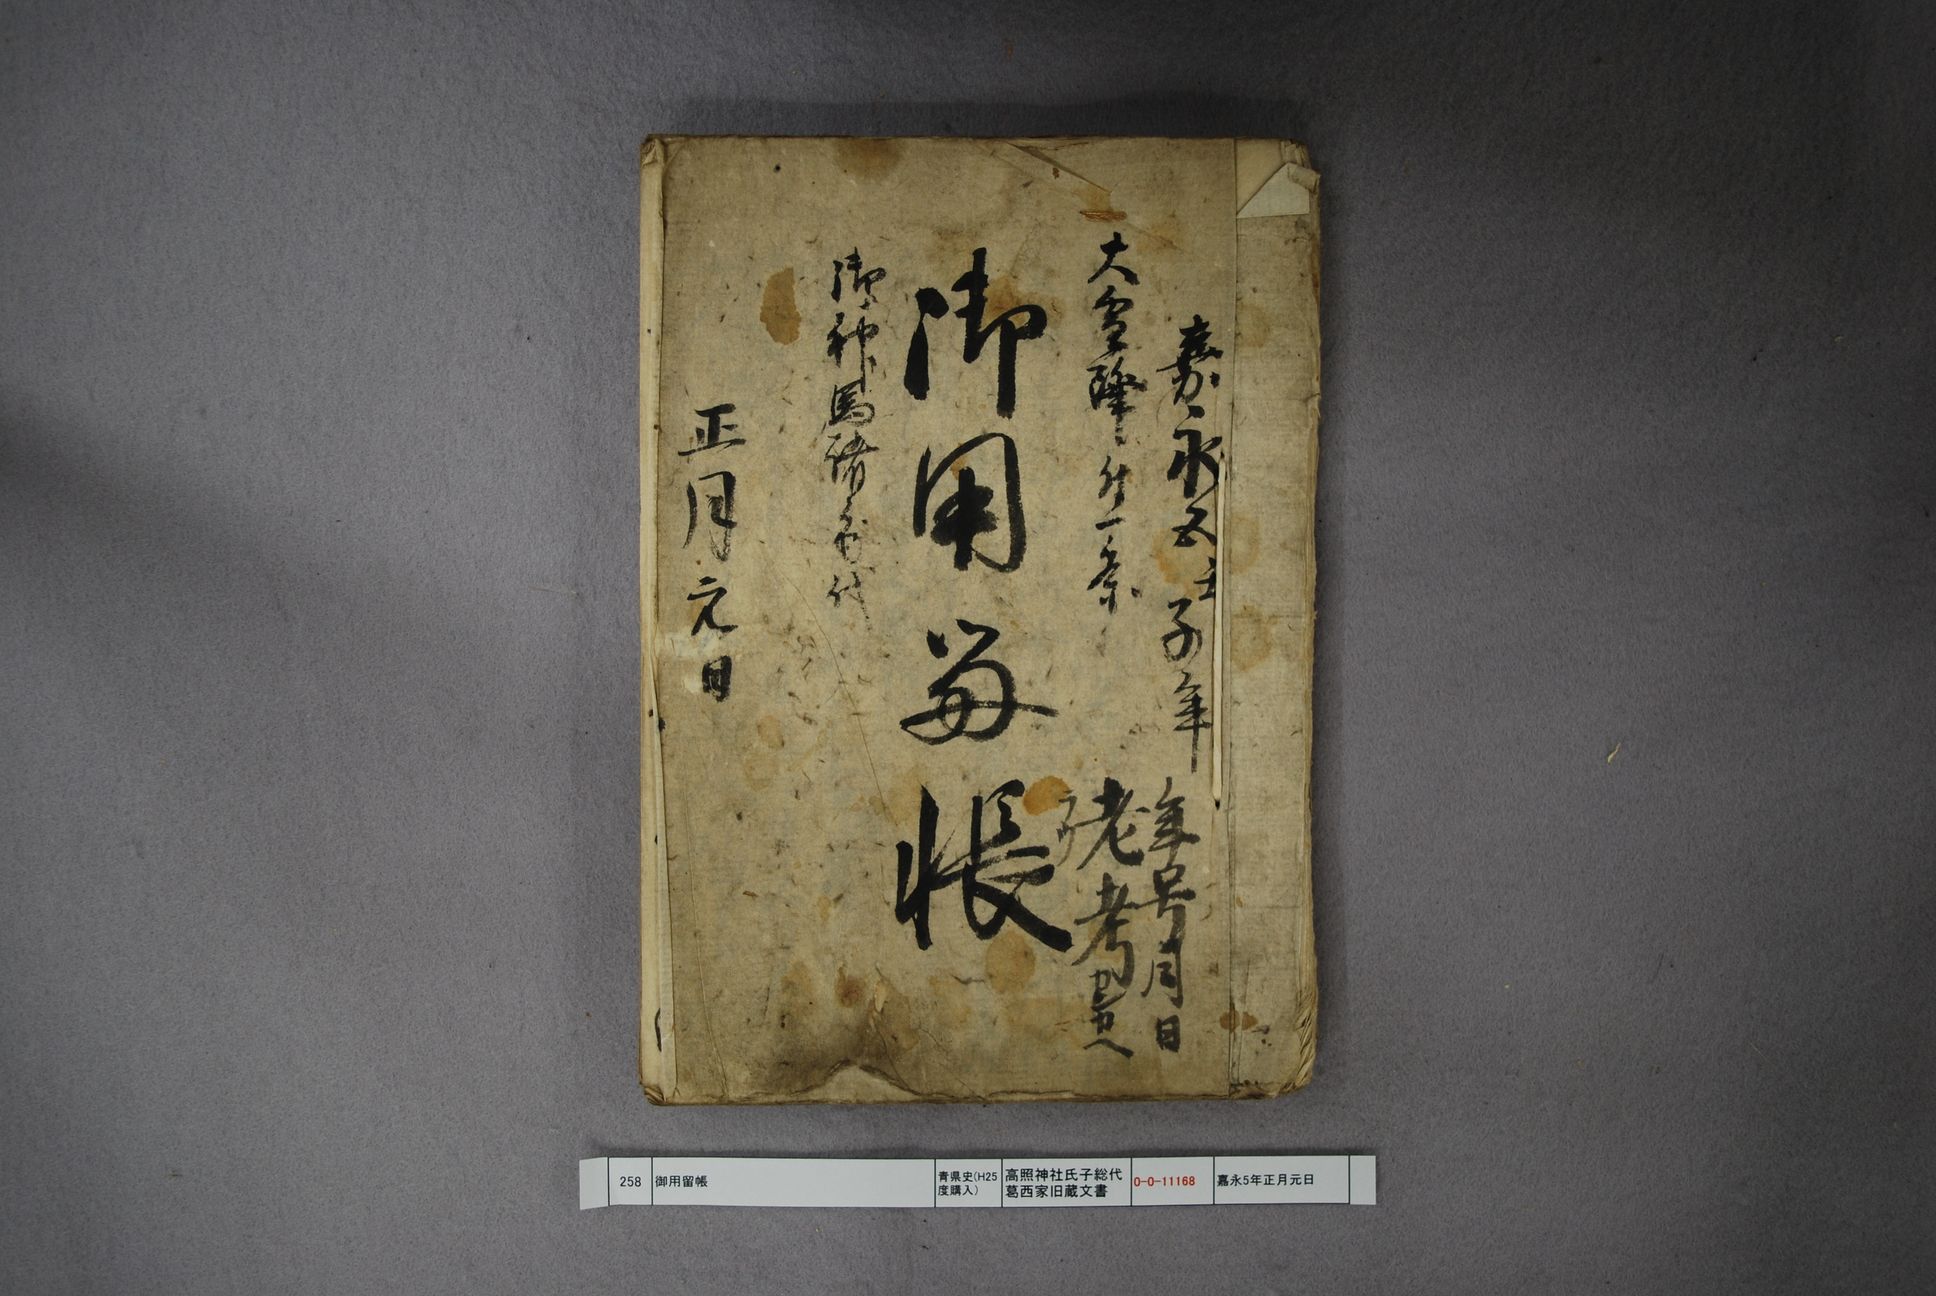 嘉永五壬子年
大雪降ニ付一条
御用留帳
御神馬諸
代
正月元日
年号月日
老考
258
御用留帳
青県史(H25
度購入)
高照神社氏子総代
葛西家旧蔵文書
0-0-11168
嘉永5年正月元日